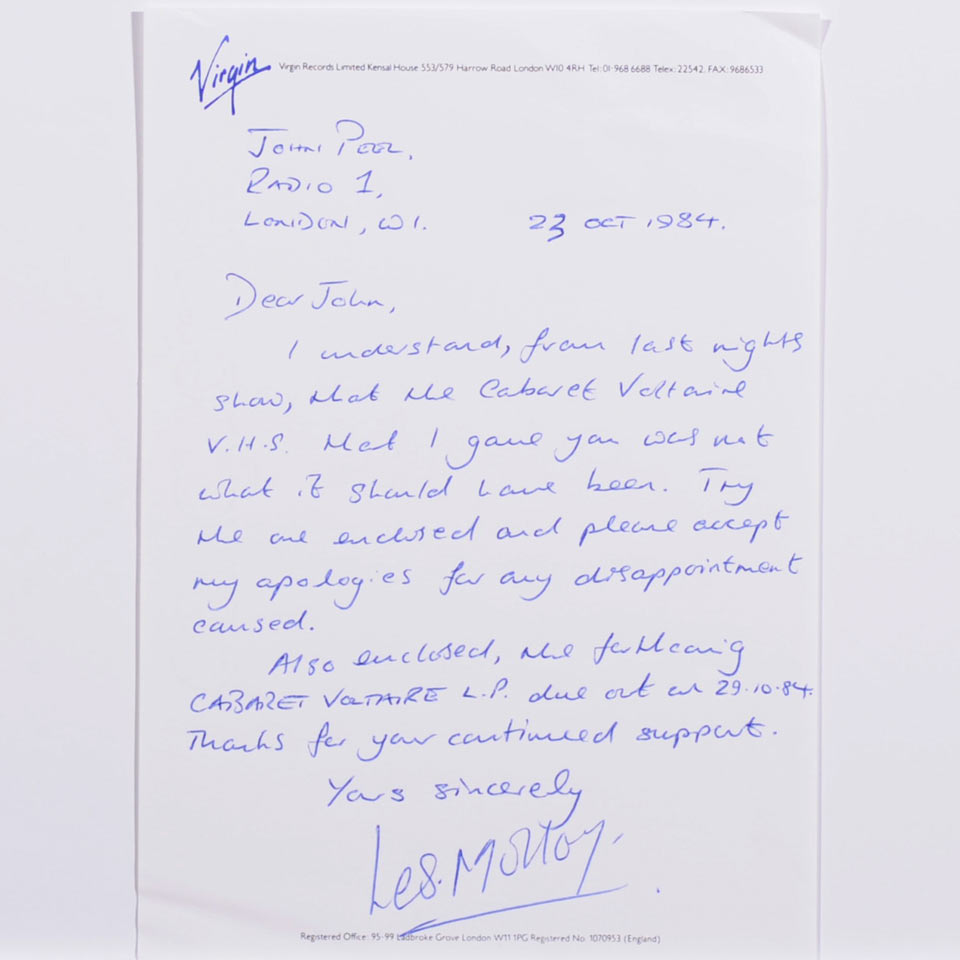 Virgin
Virgin Records Limited Kensal House 553/579 Harrow Road London W10 4RH Tel: 01-968 6688 Telex: 22542. FAX: 9686533
JOHN PEEL,
RADIO 1,
LONDON, W1.
23 OCT 1984.
Dear John,
I understand, from last nights
show, that the Cabaret Voltaire
V.H.S. that I gave you was not
what it should have been. Try
the one enclosed and please accept
my apologies for any disappointment
caused.
Also enclosed, the forthcoming
CABARET VOLTAIRE L.P. due out on 29.10.84.
Thanks for your continued support.
Yours sincerely
Les.
Registered Office: 95-99 Ladbroke Grove London W11 1PG Registered No. 1070953 (England)